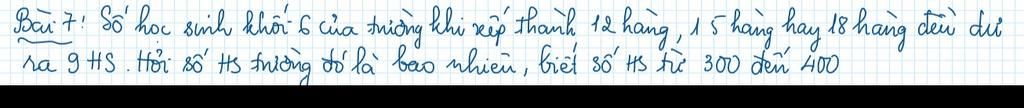 Bài 7: Số học sinh khối 6 của trường khi xếp thành 12 hàng, 15 hàng hay 18 hàng đều dư
ra 9 HS. Hỏi số HS trường đó là bao nhiêu, biết số HS từ 300 đến 400